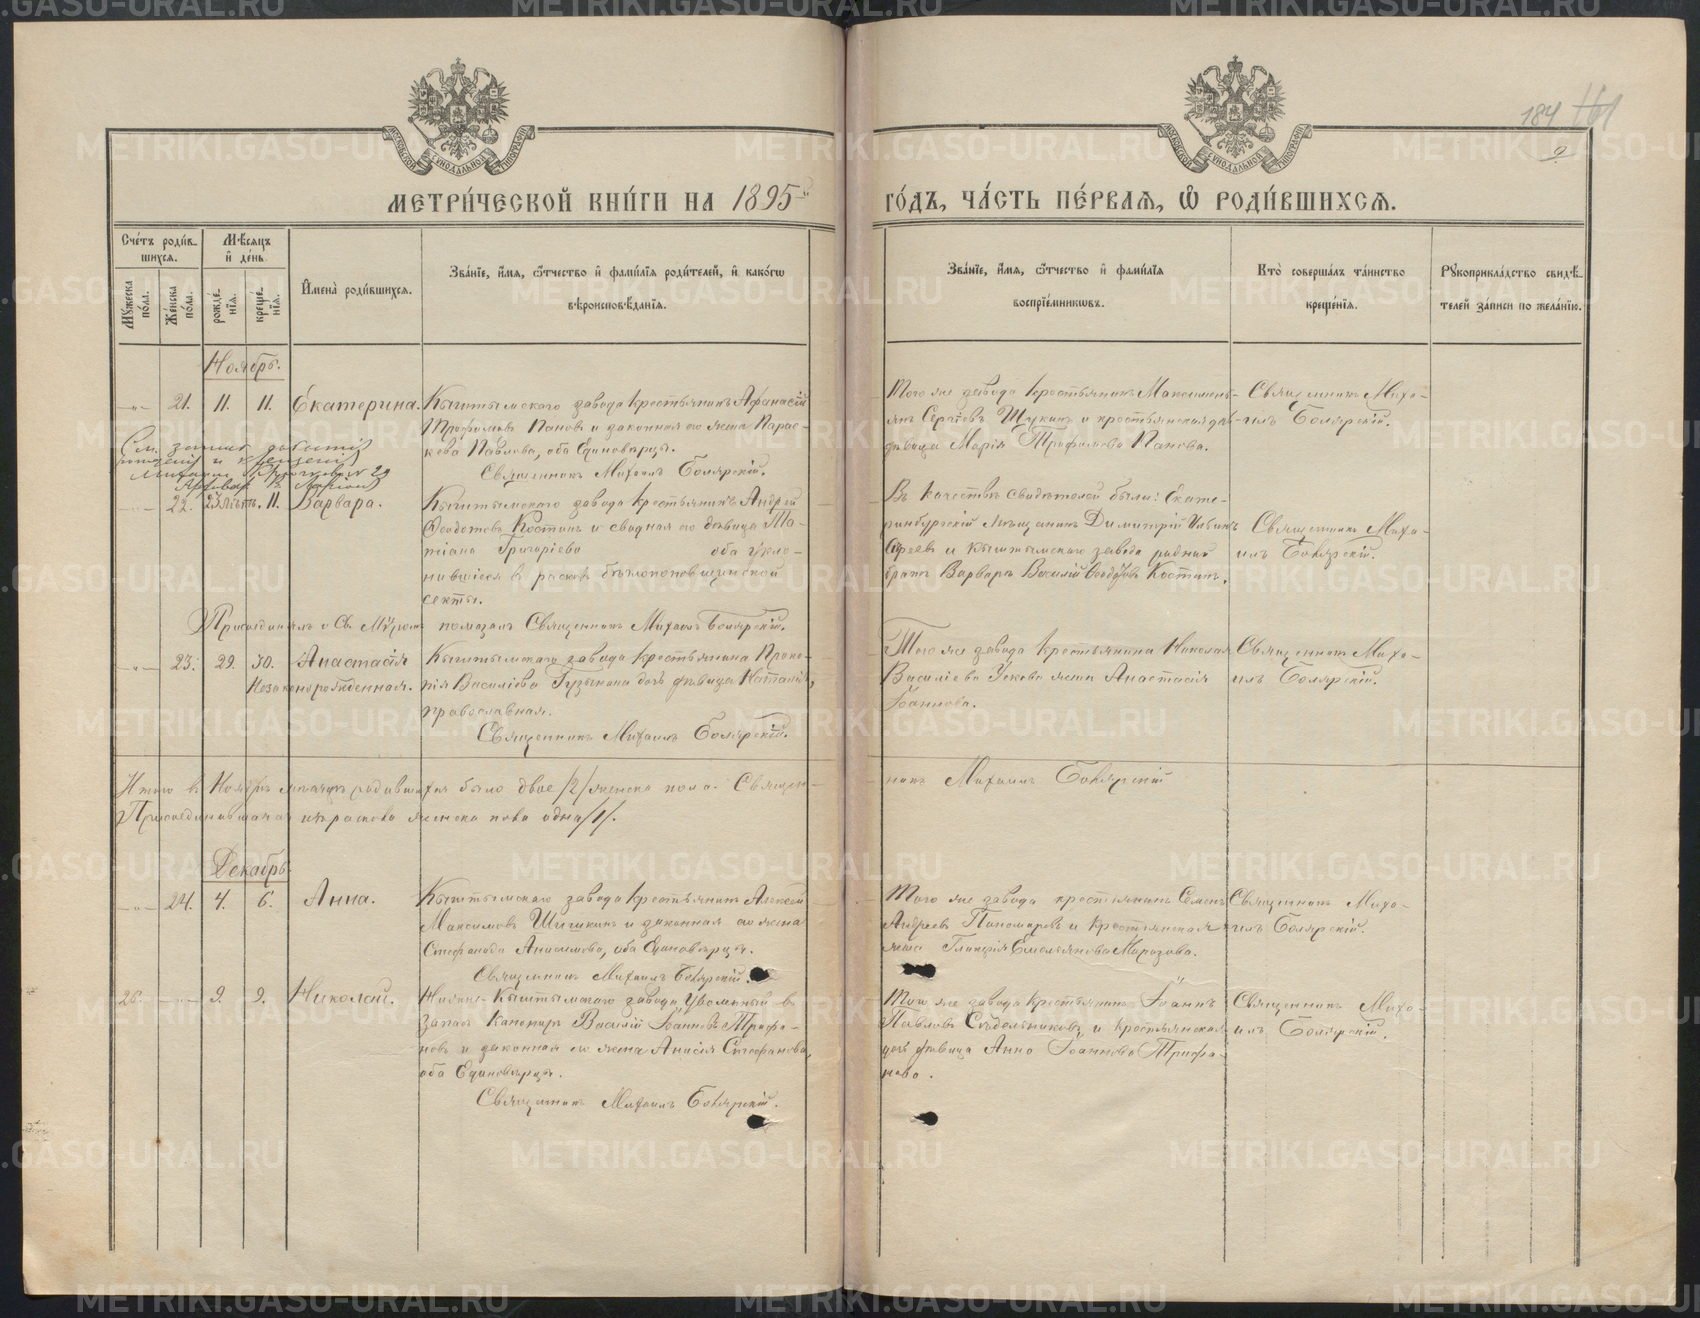 184
9
МЕТРИ́ЧЕСКОЙ КНИ́ГИ НА 1895й ГО́ДЪ, ЧА́СТЬ ПЕ́РВАЯ, Ѡ РОДИ́ВШИХСЯ.
Сче́тъ роди́вшихся.
Мѣ́сяцъ и де́нь.
Мꙋжеска по́ла.
Же́нска по́ла.
рожде́нїѧ.
креще́нїѧ.
Имена̀ роди́вшихсѧ.
Зва́нїе, и́мѧ, ѻ́тчество и фами́лїѧ роди́телей, и како́гѡ
вѣроисповѣ́данїѧ.
Зва́нїе, и́мѧ, ѻ́тчество и фами́лїѧ
воспрїе́мникѡвъ.
Кто̀ соверша́лъ та́инство
креще́нїѧ.
Рꙋкоприкла́дство свидѣ́-
телей за́писи по жела́нїю.
Ноябрь.
21. 11. 11. Екатерина.
Кыштымскаго завода крестьянинъ Афанасій
Трофимовъ Пановъ и законная его жена Парас-
кева Павлова, оба Единовѣрцы.
Священникъ Михаилъ Боляр­скій.
Того же завода крестьянинъ Максимилі-
анъ Сергѣевъ Щукинъ и крестьянская
дѣвица Марія Трофимова Панова.
Священникъ Миха-
илъ Болярскій.
22. 23 лѣтъ. 11. Варвара.
Кыштымскаго завода крестьянинъ Андрей
Ѳеодотовъ Костинъ и сводная его дѣвица Та-
тіана Григоріева оба укло-
нившіеся в расколъ бѣлопоповщинской
секты.
Присоединилъ и Св. Мѵромъ помазалъ Священникъ Михаилъ Болярскій.
Въ качествѣ свидѣтелей были: Екате-
ринбургскій мѣщанинъ Димитрій
и Кыштымскаго завода родный
братъ Варвары Василій Костинъ.
Священникъ Миха-
илъ Болярскій.
23. 29. 30. Анастасія
Незаконорожденная.
Кыштымскаго завода крестьянина Проко-
пія Василіева Гузынина дочь дѣвица Наталія,
православная.
Священникъ Михаилъ Болярскій.
Того же завода крестьянина Николая
Василіева Ускова жена Анастасія
Іоаннова.
Священникъ Миха-
илъ Болярскій.
Итого в Ноябрѣ мѣсяцѣ родившихся было двое /2/ женска пола. Священ-
никъ Михаилъ Болярскій
Присоединившаяся изъ раскола женска пола одна /1/.
Декабрь
24. 4. 6. Анна.
Кыштымскаго завода крестьянинъ Алексѣй
Максимовъ Шишкинъ и законная его жена
Стефанида Анисимова, оба Единовѣрцы.
Священникъ Михаилъ Болярскій.
Того же завода крестьянинъ Семенъ
Андреевъ Пономаревъ и крестьянская
жена Гликерія Емельянова Морозова.
Священникъ Миха-
илъ Болярскій.
26. 9. 9. Николай.
Нижне-Кыштымскаго завода уволенный в
запасъ Канониръ Василій Іоанновъ Трифа-
новъ и законная его жена Анисія Стефанова,
оба Единовѣрцы.
Священникъ Михаилъ Болярскій.
Того же завода крестьянинъ Іоаннъ
Павловъ Сѣдельниковъ и крестьянская
дочь дѣвица Анна Іоаннова Трифа-
нова.
Священникъ Миха-
илъ Болярскій.
METRIKI.GASO-URAL.RU